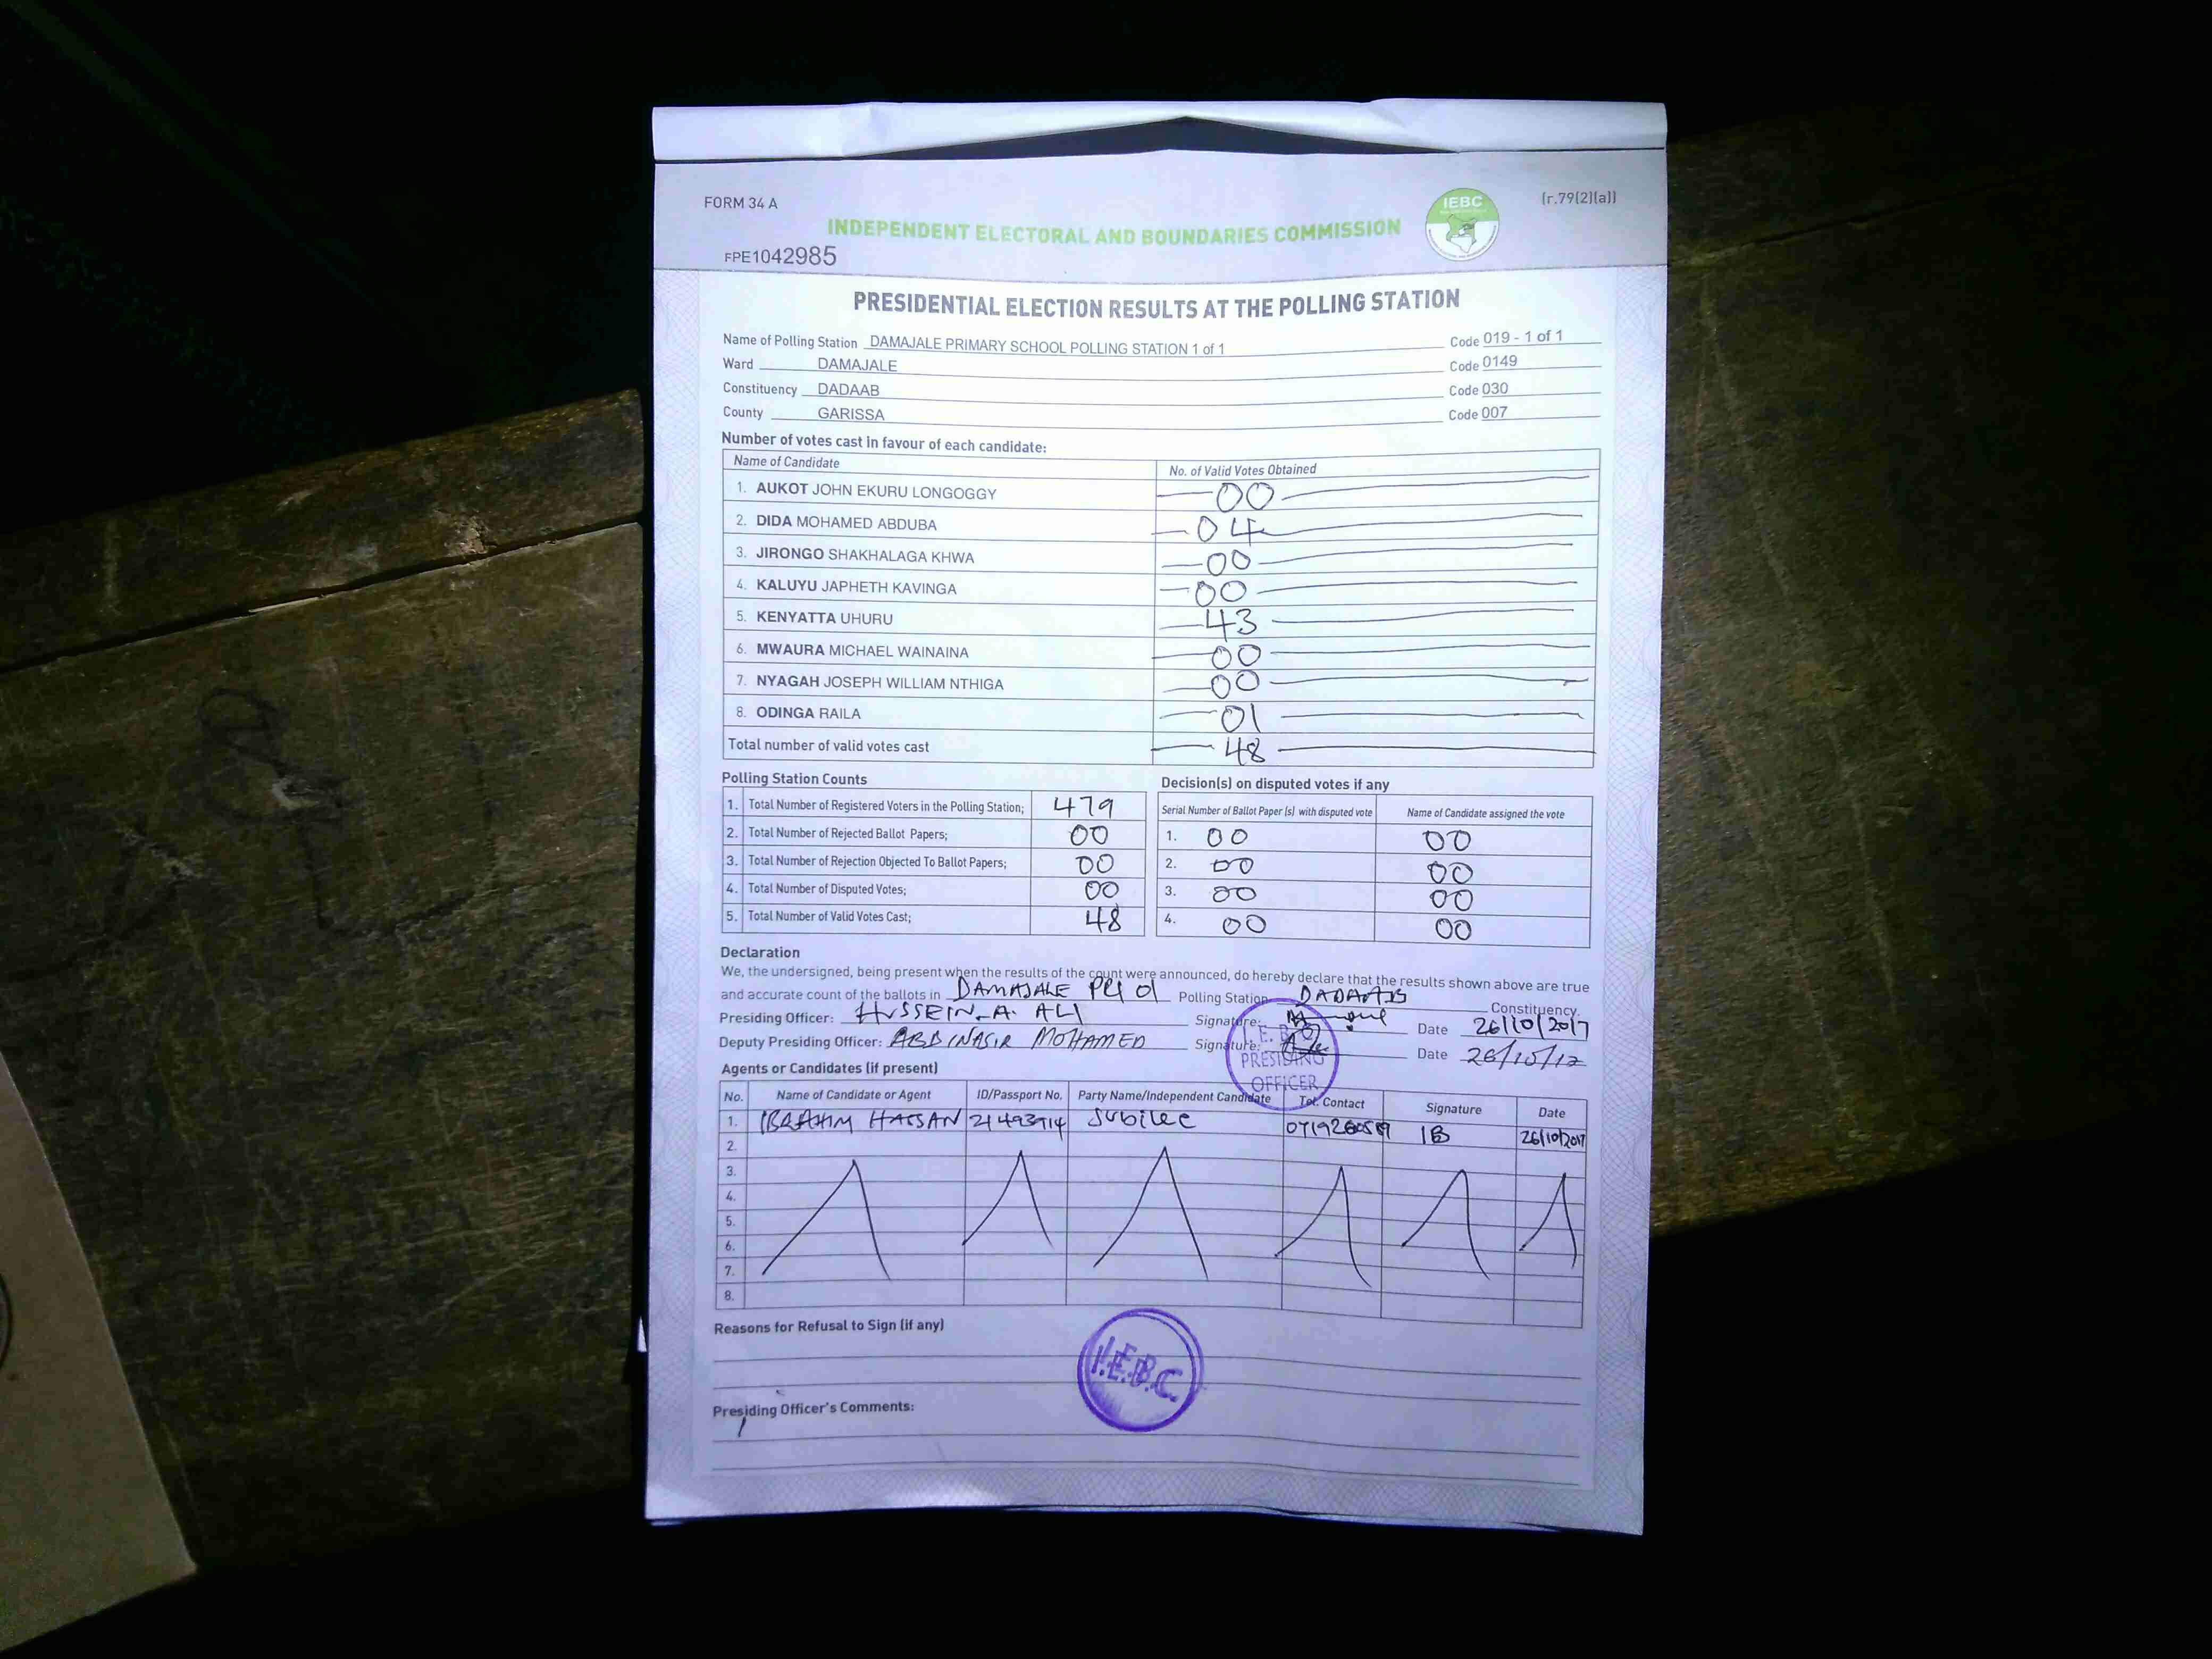 FORM 34 A
IEBC
(r.79(2)(a))
INDEPENDENT ELECTORAL AND BOUNDARIES COMMISSION
FPE1042985
PRESIDENTIAL ELECTION RESULTS AT THE POLLING STATION
Name of Polling Station DAMAJALE PRIMARY SCHOOL POLLING STATION 1 of 1 Code 019 - 1 of 1
Ward DAMAJALE Code 0149
Constituency DADAAB Code 030
County GARISSA Code 007
Number of votes cast in favour of each candidate:
Name of Candidate No. of Valid Votes Obtained
1. AUKOT JOHN EKURU LONGOGGY 00
2. DIDA MOHAMED ABDUBA 04
3. JIRONGO SHAKHALAGA KHWA 00
4. KALUYU JAPHETH KAVINGA 00
5. KENYATTA UHURU 43
6. MWAURA MICHAEL WAINAINA 00
7. NYAGAH JOSEPH WILLIAM NTHIGA 00
8. ODINGA RAILA 01
Total number of valid votes cast 48
Polling Station Counts
1. Total Number of Registered Voters in the Polling Station; 479
2. Total Number of Rejected Ballot Papers; 00
3. Total Number of Rejection Objected To Ballot Papers; 00
4. Total Number of Disputed Votes; 00
5. Total Number of Valid Votes Cast; 48
Decision(s) on disputed votes if any
Serial Number of Ballot Paper (s) with disputed vote Name of Candidate assigned the vote
1. 00 00
2. 00 00
3. 00 00
4. 00 00
Declaration
We, the undersigned, being present when the results of the count were announced, do hereby declare that the results shown above are true
and accurate count of the ballots in DAMAJALE PRI 01 Polling Station DADAAB Constituency.
Presiding Officer: HUSSEIN A. ALI Signature: Date 26/10/2017
Deputy Presiding Officer: ABDINASIR MOHAMED Signature: Date 26/10/17
I.E.B.C
PRESIDING
OFFICER
Agents or Candidates (if present)
No. Name of Candidate or Agent ID/Passport No. Party Name/Independent Candidate Tel. Contact Signature Date
1. IBRAHIM HASSAN 21493914 Jubilee IB 26/10/2017
2.
3.
4.
5.
6.
7.
8.
Reasons for Refusal to Sign (if any)
I.E.B.C
Presiding Officer's Comments: